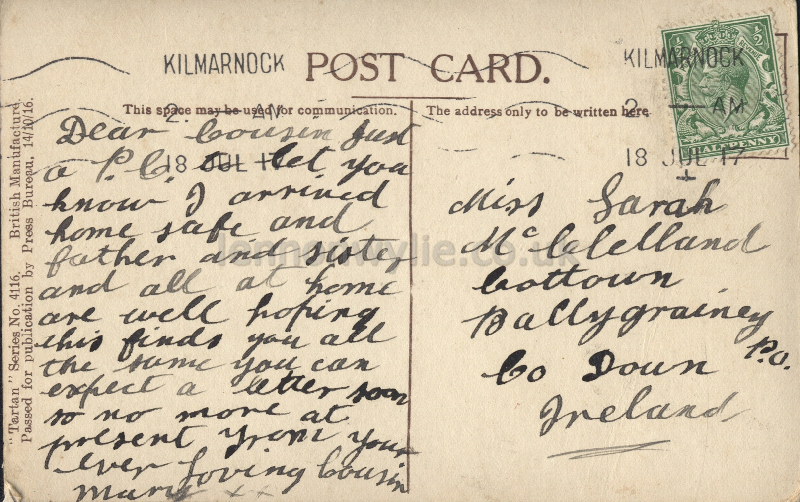 KILMARNOCK
POST CARD.
KILMARNOCK
This space may be used for communication.
The address only to be written here
2. AM
18 JUL 17
2 AM
18 JUL 17
½ ½
HALFPENNY
"Tartan" Series No. 4116. British Manufacture.
Passed for publication by Press Bureau, 14/10/16.
Dear Cousin Just
a P.C. to let you
know I arrived
home safe and
father and sister
and all at home
are well hoping
this finds you all
the same you can
expect a letter soon
so no more at
present from your
ever loving Cousin
Mary x x
Miss Sarah
McClelland
Cottown
Ballygrainey
P.O.
Co Down
Ireland
lennonwylie.co.uk